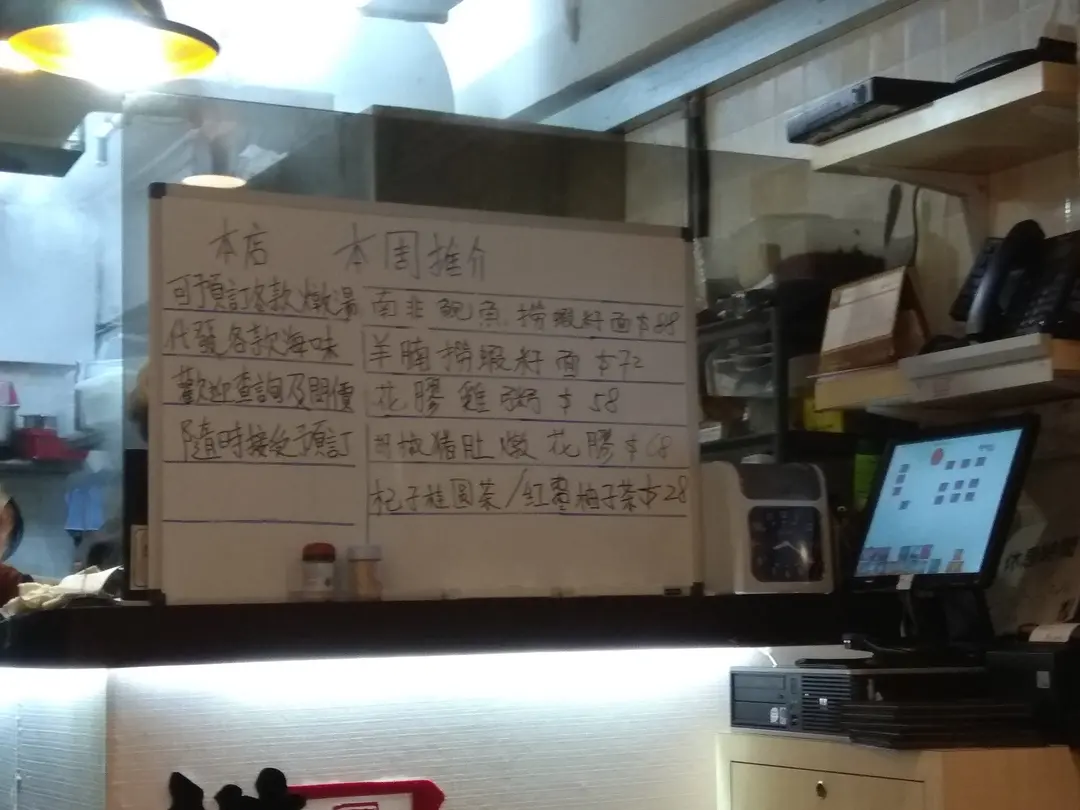 本店
可預訂各款燉湯
代發各款海味
歡迎查詢及問價
隨時接受預訂
本周推介
南非鮑魚撈蝦籽面$88
羊腩撈蝦籽面 $72
花膠雞粥 $58
胡椒猪肚燉花膠$68
杞子桂圓茶/紅棗柚子茶$28